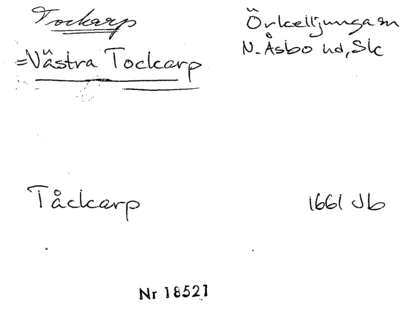 Tockarp
Örkelljunga sn
=Västra Tockarp
N. Åsbo hd, Sk
Tåckarp
1661 Jb
Nr 18521